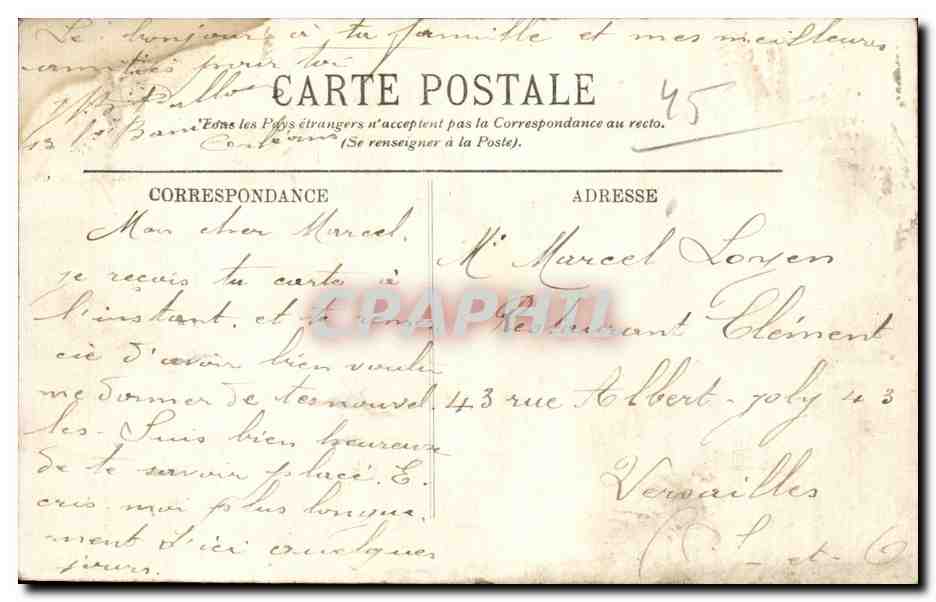 Le bonjour à ta famille et mes meilleures
amitiés pour toi
CARTE POSTALE
45
Tous les Pays étrangers n'acceptent pas la Correspondance au recto.
(Se renseigner à la Poste).
CORRESPONDANCE
Mon cher Marcel.
je reçois ta carte à
l'instant. et te remer
cie d'avoir bien voulu
me donner de tes nouvel
les. Suis bien heureux
de te savoir placé. E.
cris. moi plus longue.
ment d'ici quelques
jours.
ADRESSE
Mr Marcel Loyen
Restaurant Clément
43 rue Albert-joly 43
Versailles
(S.-et-O
CPAPHIL